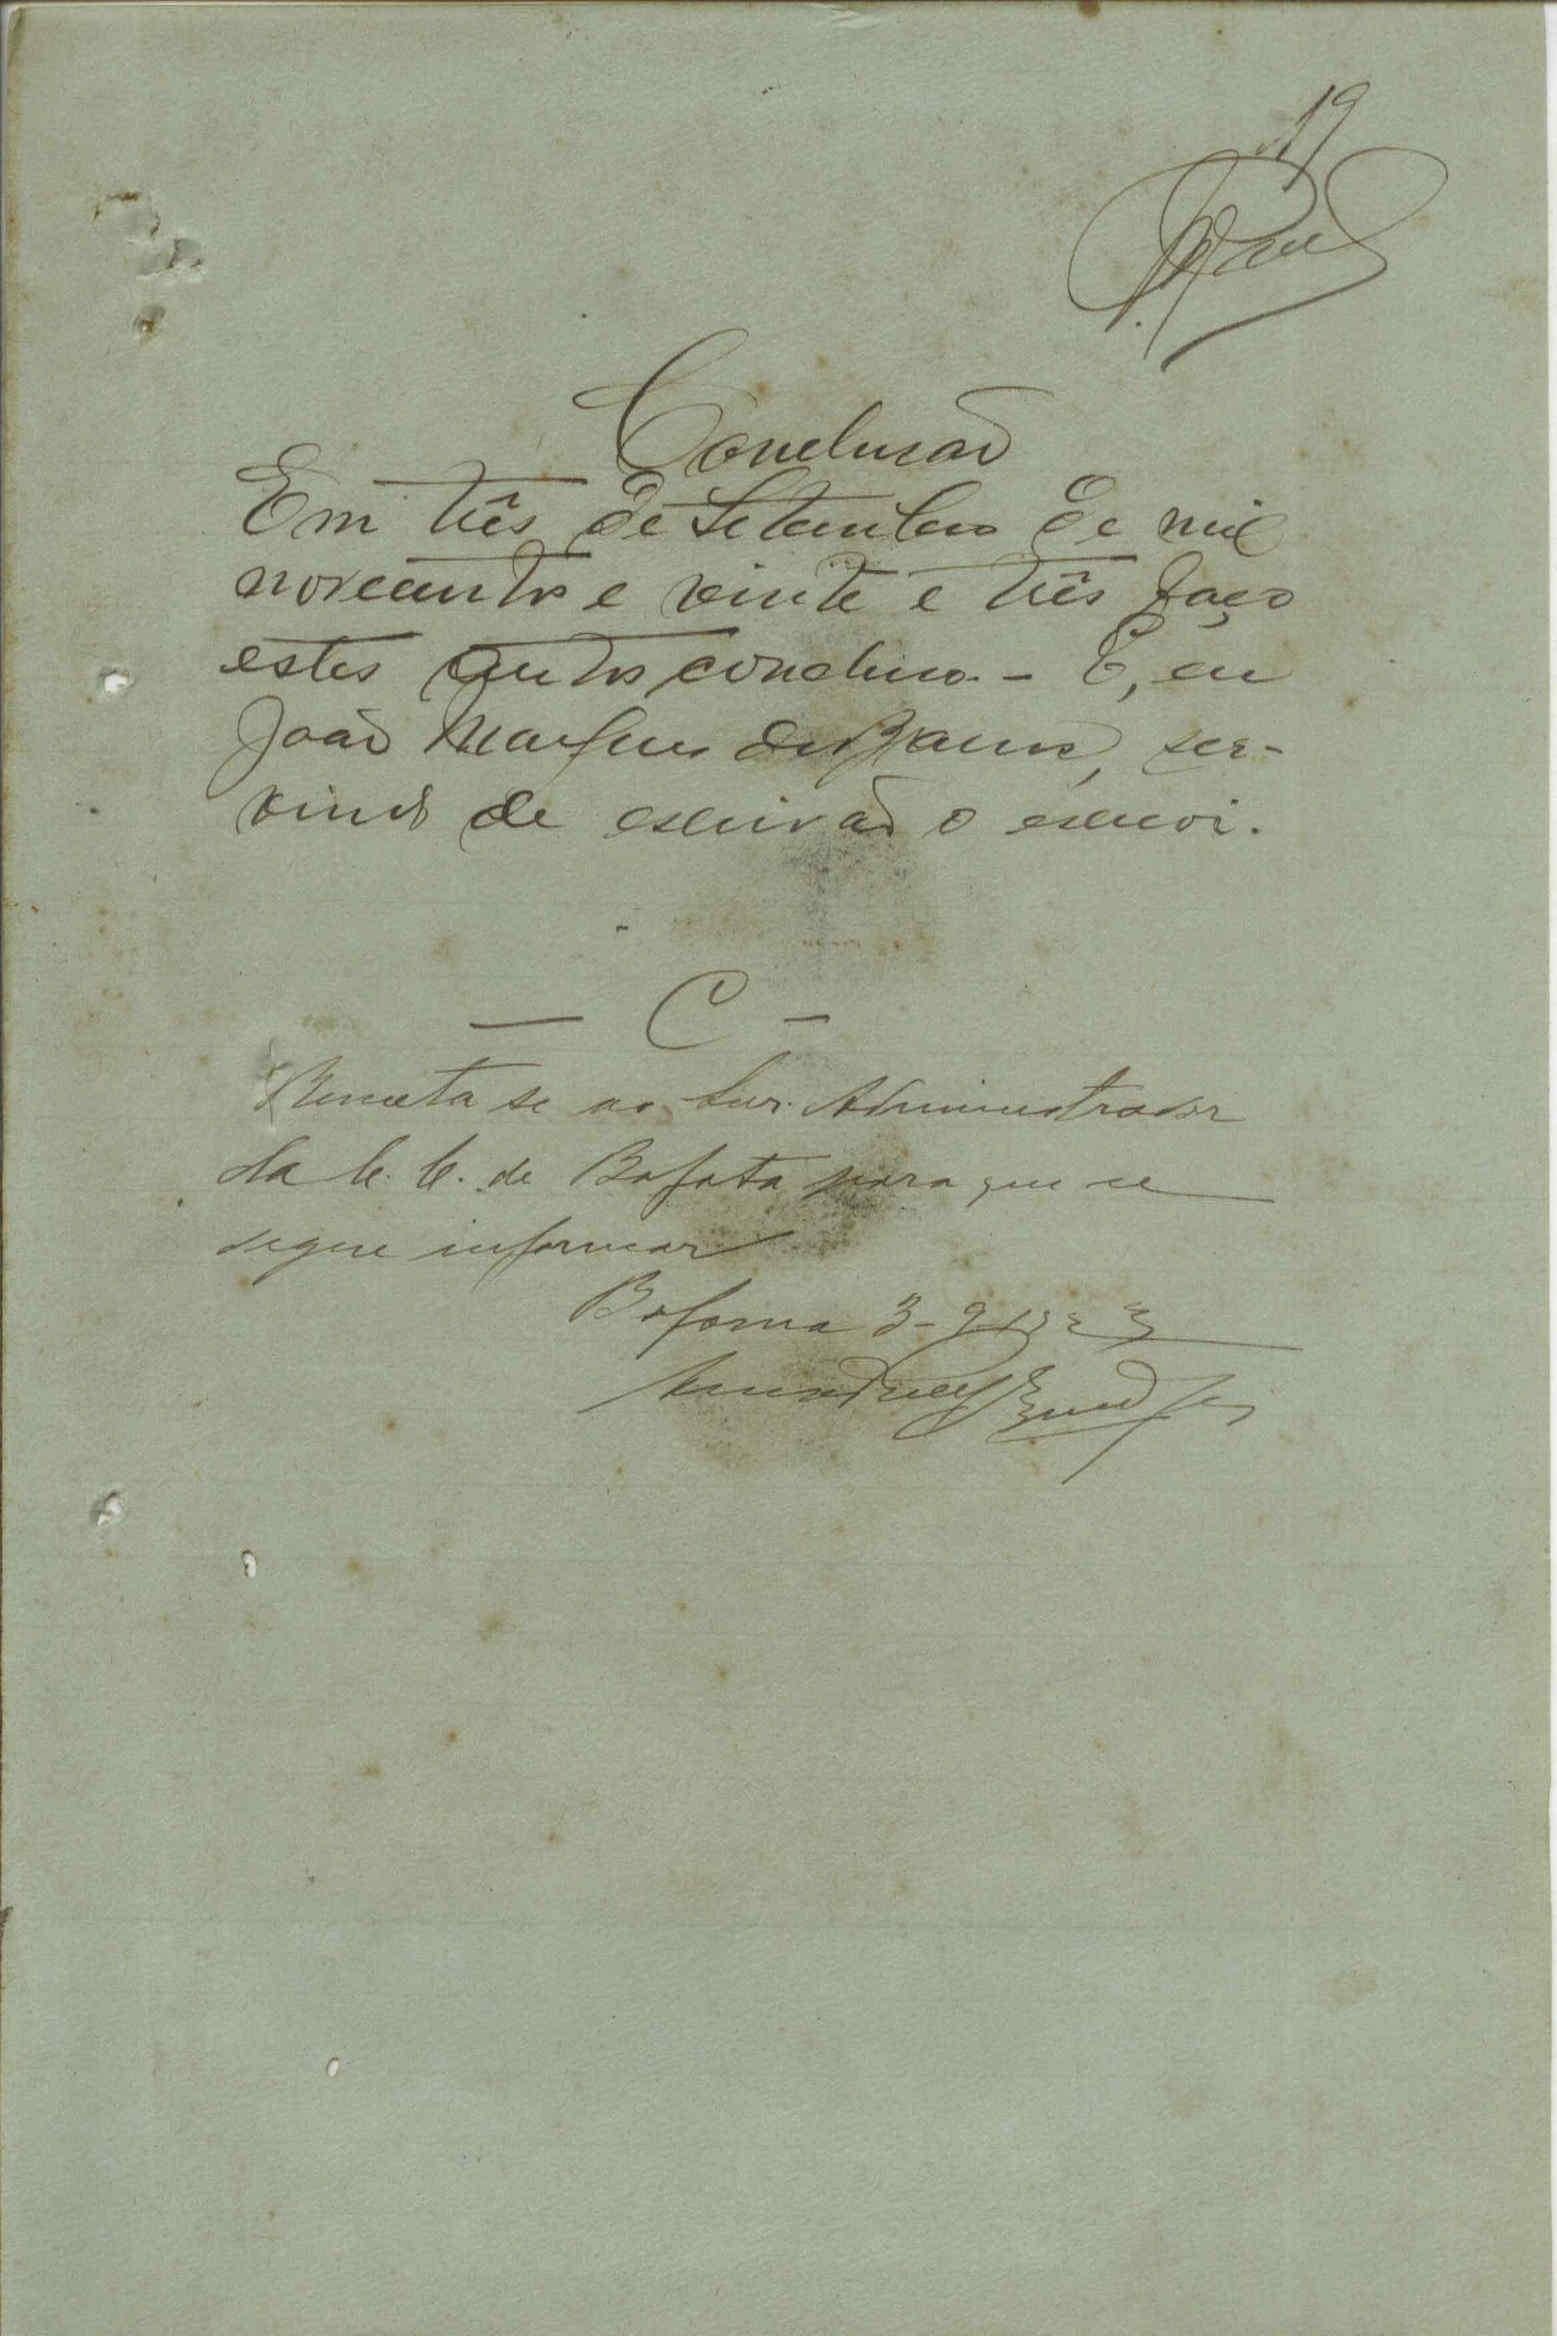 19
Conclusão
Em três de Setembro de mil
novecentos e vinte e três faço
estes autos conclusos. - E, eu
João Marques de Barros, ser-
vindo de escrivão o escrevi.
— C —
Remeta se ao Snr. Administrador
da C. C. de Bafata para que se
digne informar
Bolama 3-9-1923